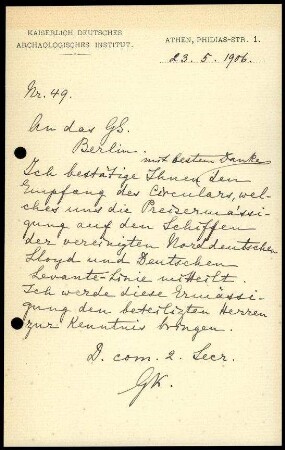 KAISERLICH DEUTSCHES
ARCHAOLOGISCHES INSTITUT.
ATHEN, PHIDIAS-STR. 1.
23. 5. 1906.
Nr. 49.
An das GS.
Berlin.
mit bestem Danke
Ich bestätige Ihnen den
Empfang des Circulars, wel-
ches uns die Preisermässi-
gung auf den Schiffen
der vereinigten Norddeutschen
Lloyd und Deutschen
Levante-Linie mitteilt.
Ich werde diese Ermässi-
gung den beteiligten Herren
zur Kenntnis bringen.
D. com. 2. Secr.
GK.